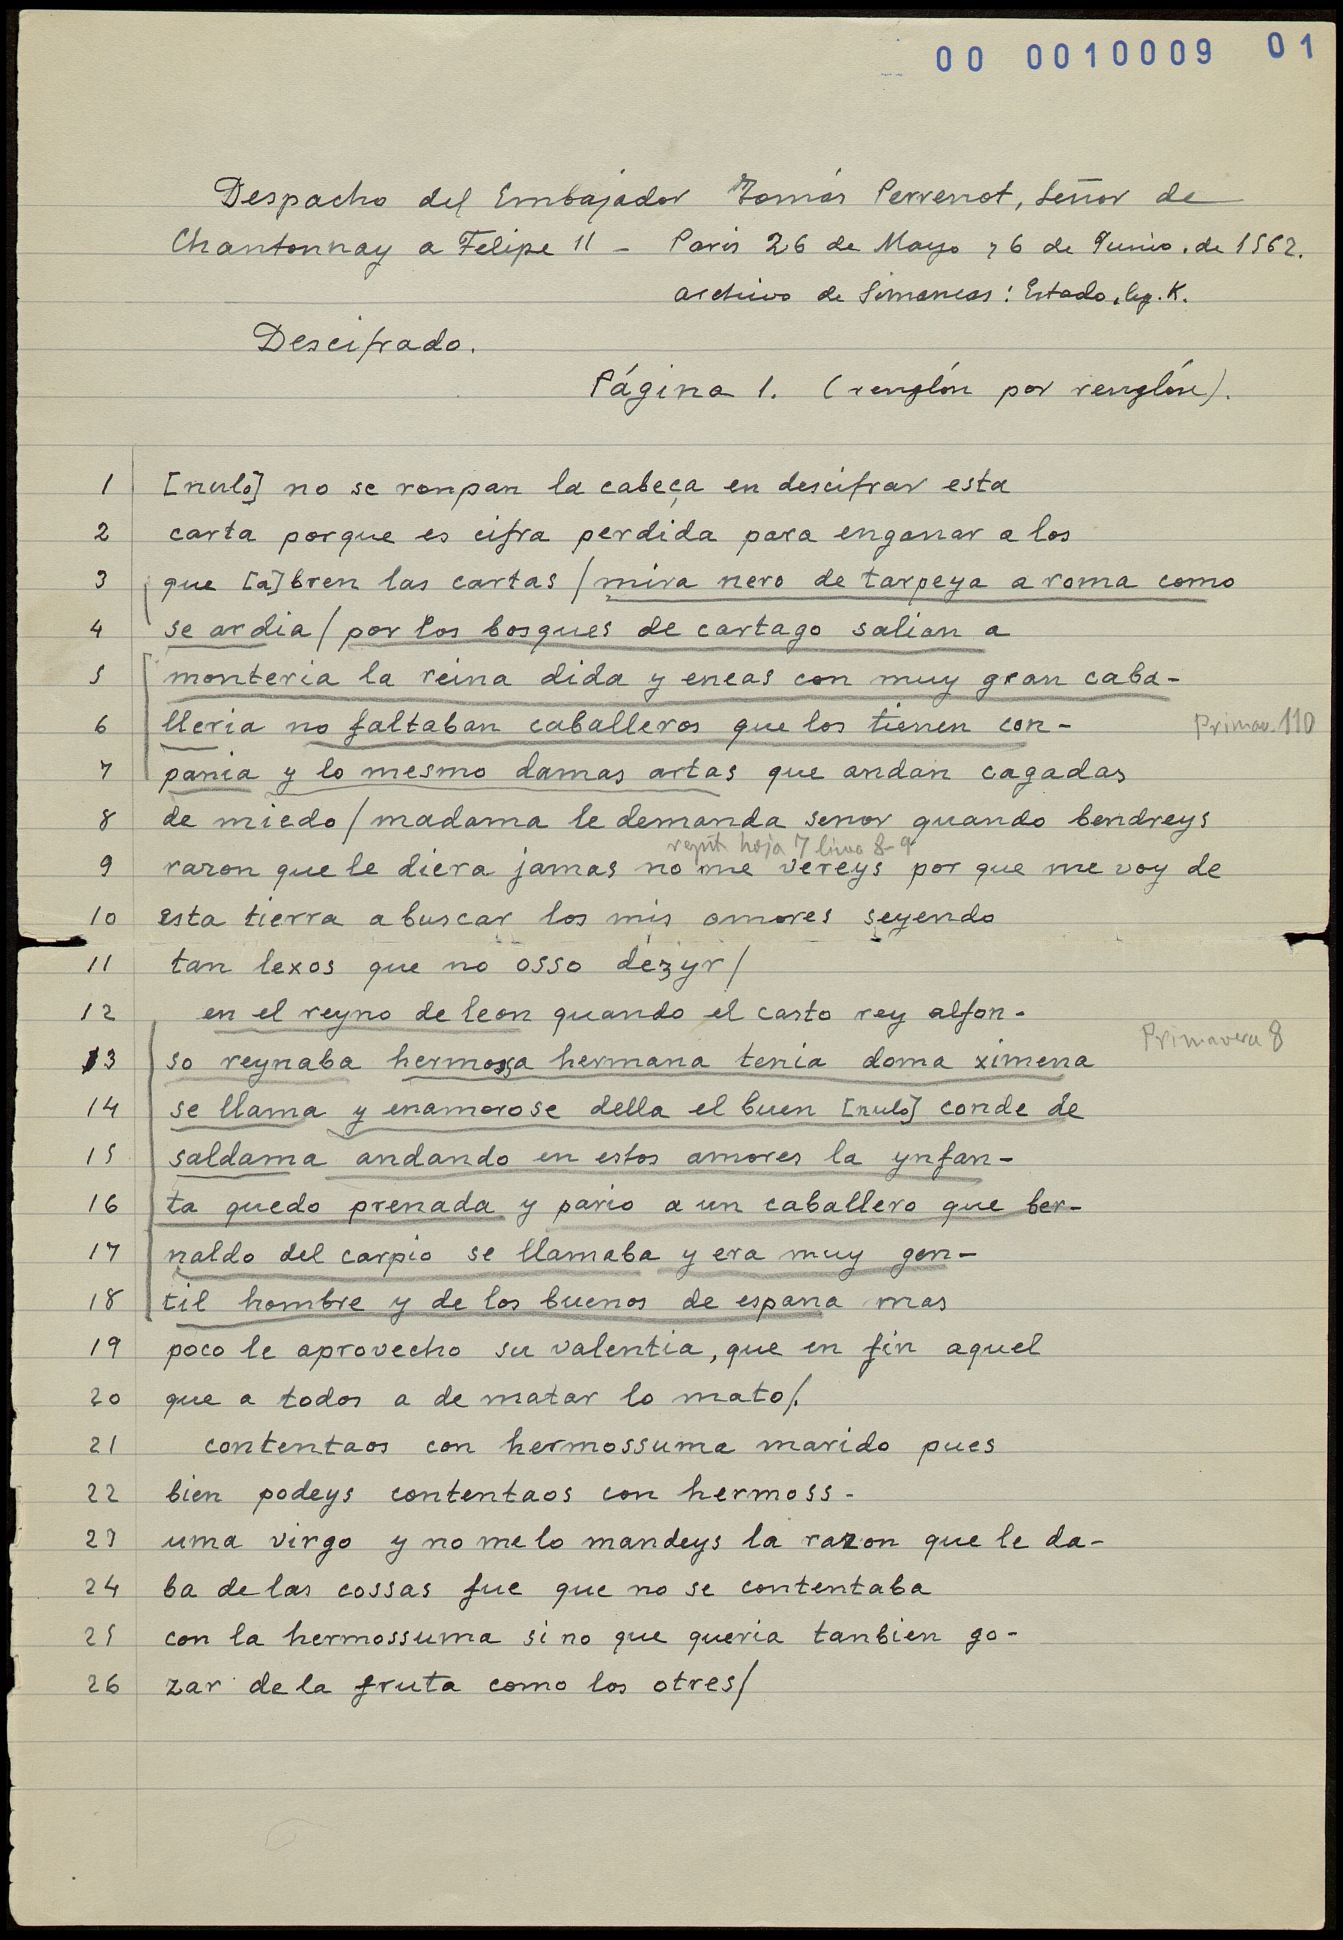 00 0010009 01
Despacho del Embajador Tomás Perrenot, Señor de
Chantonnay a Felipe II - Paris 26 de Mayo y 6 de Junio. de 1562.
Archivo de Simancas: Estado, leg. K.
Descifrado.
Página 1. (renglón por renglón).
1 [nulo] no se ronpan la cabeça en descifrar esta
2 carta porque es cifra perdida para enganar a los
3 que [a]bren las cartas / mira nero de tarpeya a roma como
4 se ardia / por los bosques de cartago salian a
5 monteria la reina dida y eneas con muy gran caba-
6 lleria no faltaban caballeros que los tienen con- Primav. 110
7 pania y lo mesmo damas artas que andan cagadas
8 de miedo / madama le demanda senor quando bendreys
repit hoja 7 linea 8-9
9 razon que le diera jamas no me vereys por que me voy de
10 esta tierra a buscar los mis amores seyendo
11 tan lexos que no osso dezyr /
12 en el reyno de leon quando el casto rey alfon-
13 so reynaba hermosa hermana tenia doma ximena Primavera 8
14 se llama y enamorose della el buen [nulo] conde de
15 saldama andando en estos amores la ynfan-
16 ta quedo prenada y pario a un caballero que ber-
17 naldo del carpio se llamaba y era muy gen-
18 til hombre y de los buenos de espana mas
19 poco le aprovecho su valentia, que en fin aquel
20 que a todos a de matar lo mato /.
21 contentaos con hermossuma marido pues
22 bien podeys contentaos con hermoss-
23 uma virgo y no me lo mandeys la razon que le da-
24 ba de las cossas fue que no se contentaba
25 con la hermossuma si no que queria tanbien go-
26 zar de la fruta como los otres /